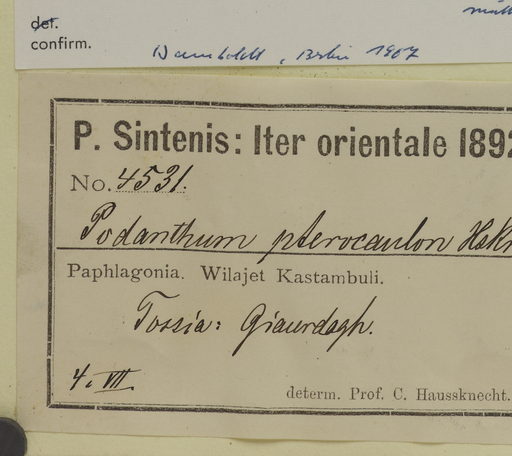 det.
confirm.
Damboldt, Berlin 1967
P. Sintenis: Iter orientale 1892
No. 4531.
Podanthum pterocaulon Hskn
Paphlagonia. Wilajet Kastambuli.
Tossia: Giaurdagh.
4. VII.
determ. Prof. C. Haussknecht.